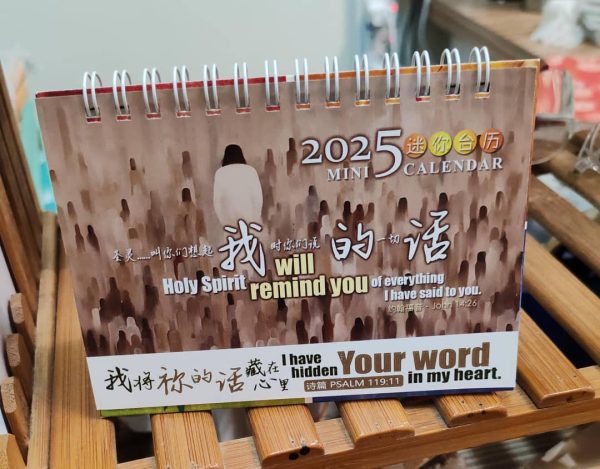 2025 迷你台历
MINI CALENDAR
圣灵……叫你们想起 我 对你们说 的 一切 话
Holy Spirit will remind you of everything I have said to you.
约翰福音 - John 14:26
我将祢的话藏在心里
I have hidden Your word in my heart.
诗篇 PSALM 119:11